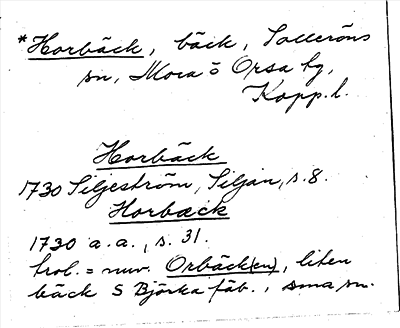 *Horbäck, bäck, Solleröns
sn, Mora o Orsa tg,
Kopp. l.
Horbäck
1730 Siljeström, Siljan, s. 8.
Horback
1730 a. a., s. 31.
trol. = nuv. Orbäck(en), liten
bäck S Björka fäb., sma sn.